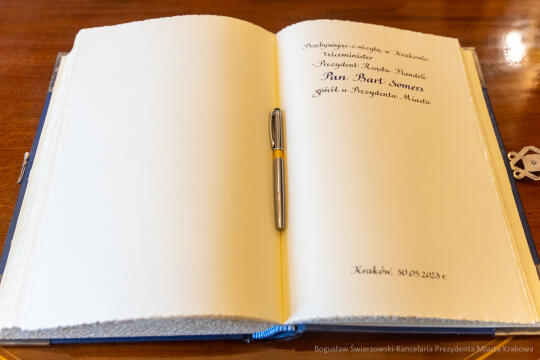 Przebywając z wizytą w Krakowie
Wiceminister
-Prezydent Rządu Flandrii
Pan Bart Somers
gościł u Prezydenta Miasta
Kraków, 30.05.2023 r.
Bogusław Świerzowski-Kancelaria Prezydenta Miasta Krakowa